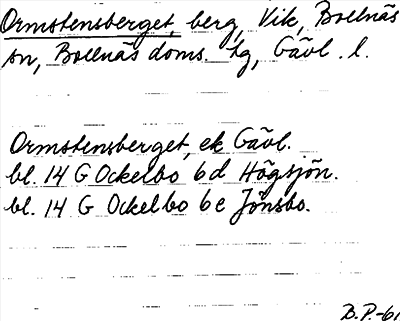 Ormstensberget, berg, Vik, Bollnäs
sn, Bollnäs doms. lg, Gävl. l.
Ormstensberget, ek Gävl.
bl. 14 G Ockelbo 6d Högsjön.
bl. 14 G Ockelbo 6e Jönsbo.
B.P.-61